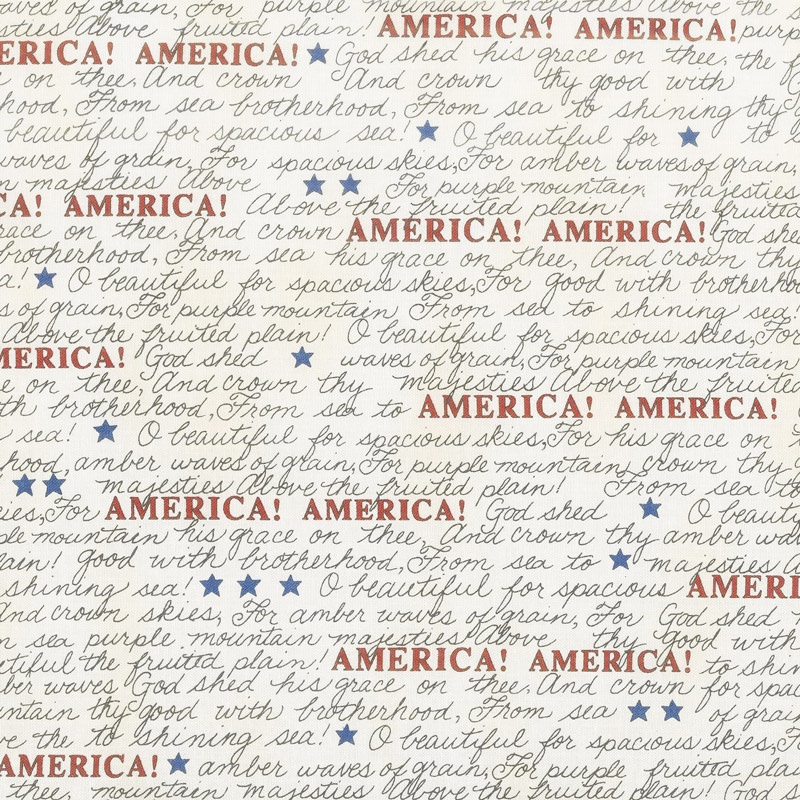 waves of grain, For purple mountain majesties Above the s
sties Above fruited plain! AMERICA! AMERICA! purp
ERICA! AMERICA! God shed his grace on thee, the f
e on thee, And crown And crown thy good with
hood, From sea brotherhood, From sea to shining thy
beautiful for spacious sea! O beautiful for to s
waves of grain, For spacious skies, For amber waves of grain,
n majesties Above For purple mountain majesties
CA! AMERICA! Above the fruited plain! the fruited
race on thee, And crown AMERICA! AMERICA! God she
brotherhood, From sea his grace on thee, And crown thy
a! O beautiful for spacious skies, For good with brotherho
s of grain, For purple mountain From sea to shining sea!
Above the fruited plain! O beautiful for spacious skies, For
MERICA! God shed waves of grain, For purple mountain
e on thee, And crown thy majesties Above the fruited
th brotherhood, From sea to AMERICA! AMERICA!
sea! O beautiful for spacious skies, For his grace on
hood, amber waves of grain, For purple mountain, crown thy
majesties Above the fruited plain! From sea to
ies, For AMERICA! AMERICA! God shed O beauty
ple mountain his grace on thee, And crown thy amber wav
lain! good with brotherhood, From sea to majesties A
shining sea! O beautiful for spacious AMERI
And crown skies, For amber waves of grain, For God shed
n sea purple mountain majesties Above thy good with
utiful the fruited plain! AMERICA! AMERICA! to shin
ber waves God shed his grace on thee, And crown for spac
untain thy good with brotherhood, From sea of grai
ve the to shining sea! O beautiful for spacious skies, F
AMERICA! amber waves of grain, For purple fruited plai
thee, mountain majesties Above the fruited plain! God s